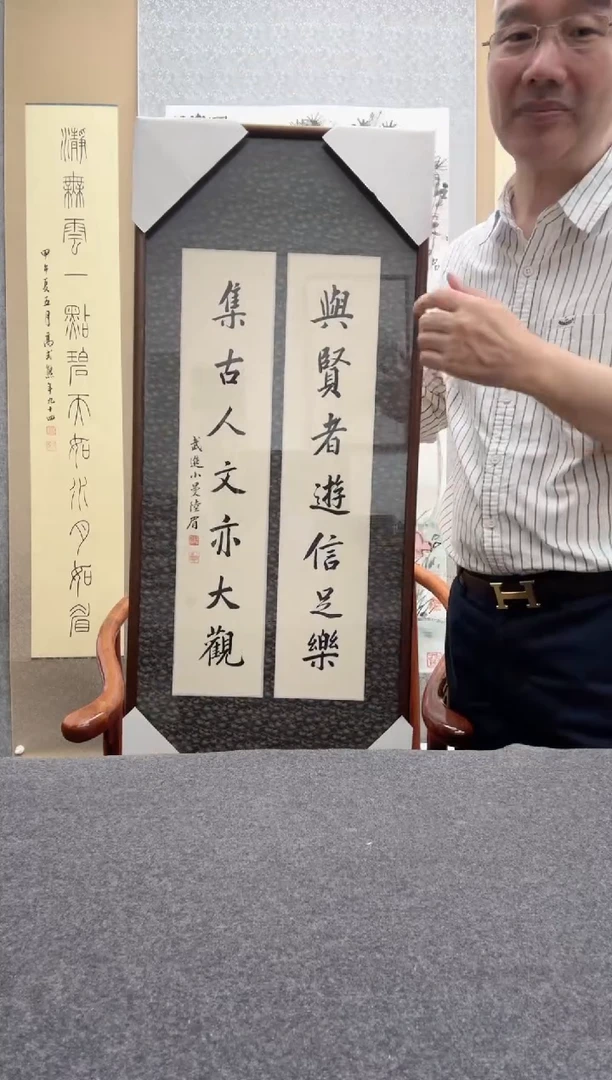 與賢者遊信足樂
集古人文亦大觀
武進小曼陸眉
瀞無雲一點碧天如水月如眉
甲午夏五月高式熊年九十四
H